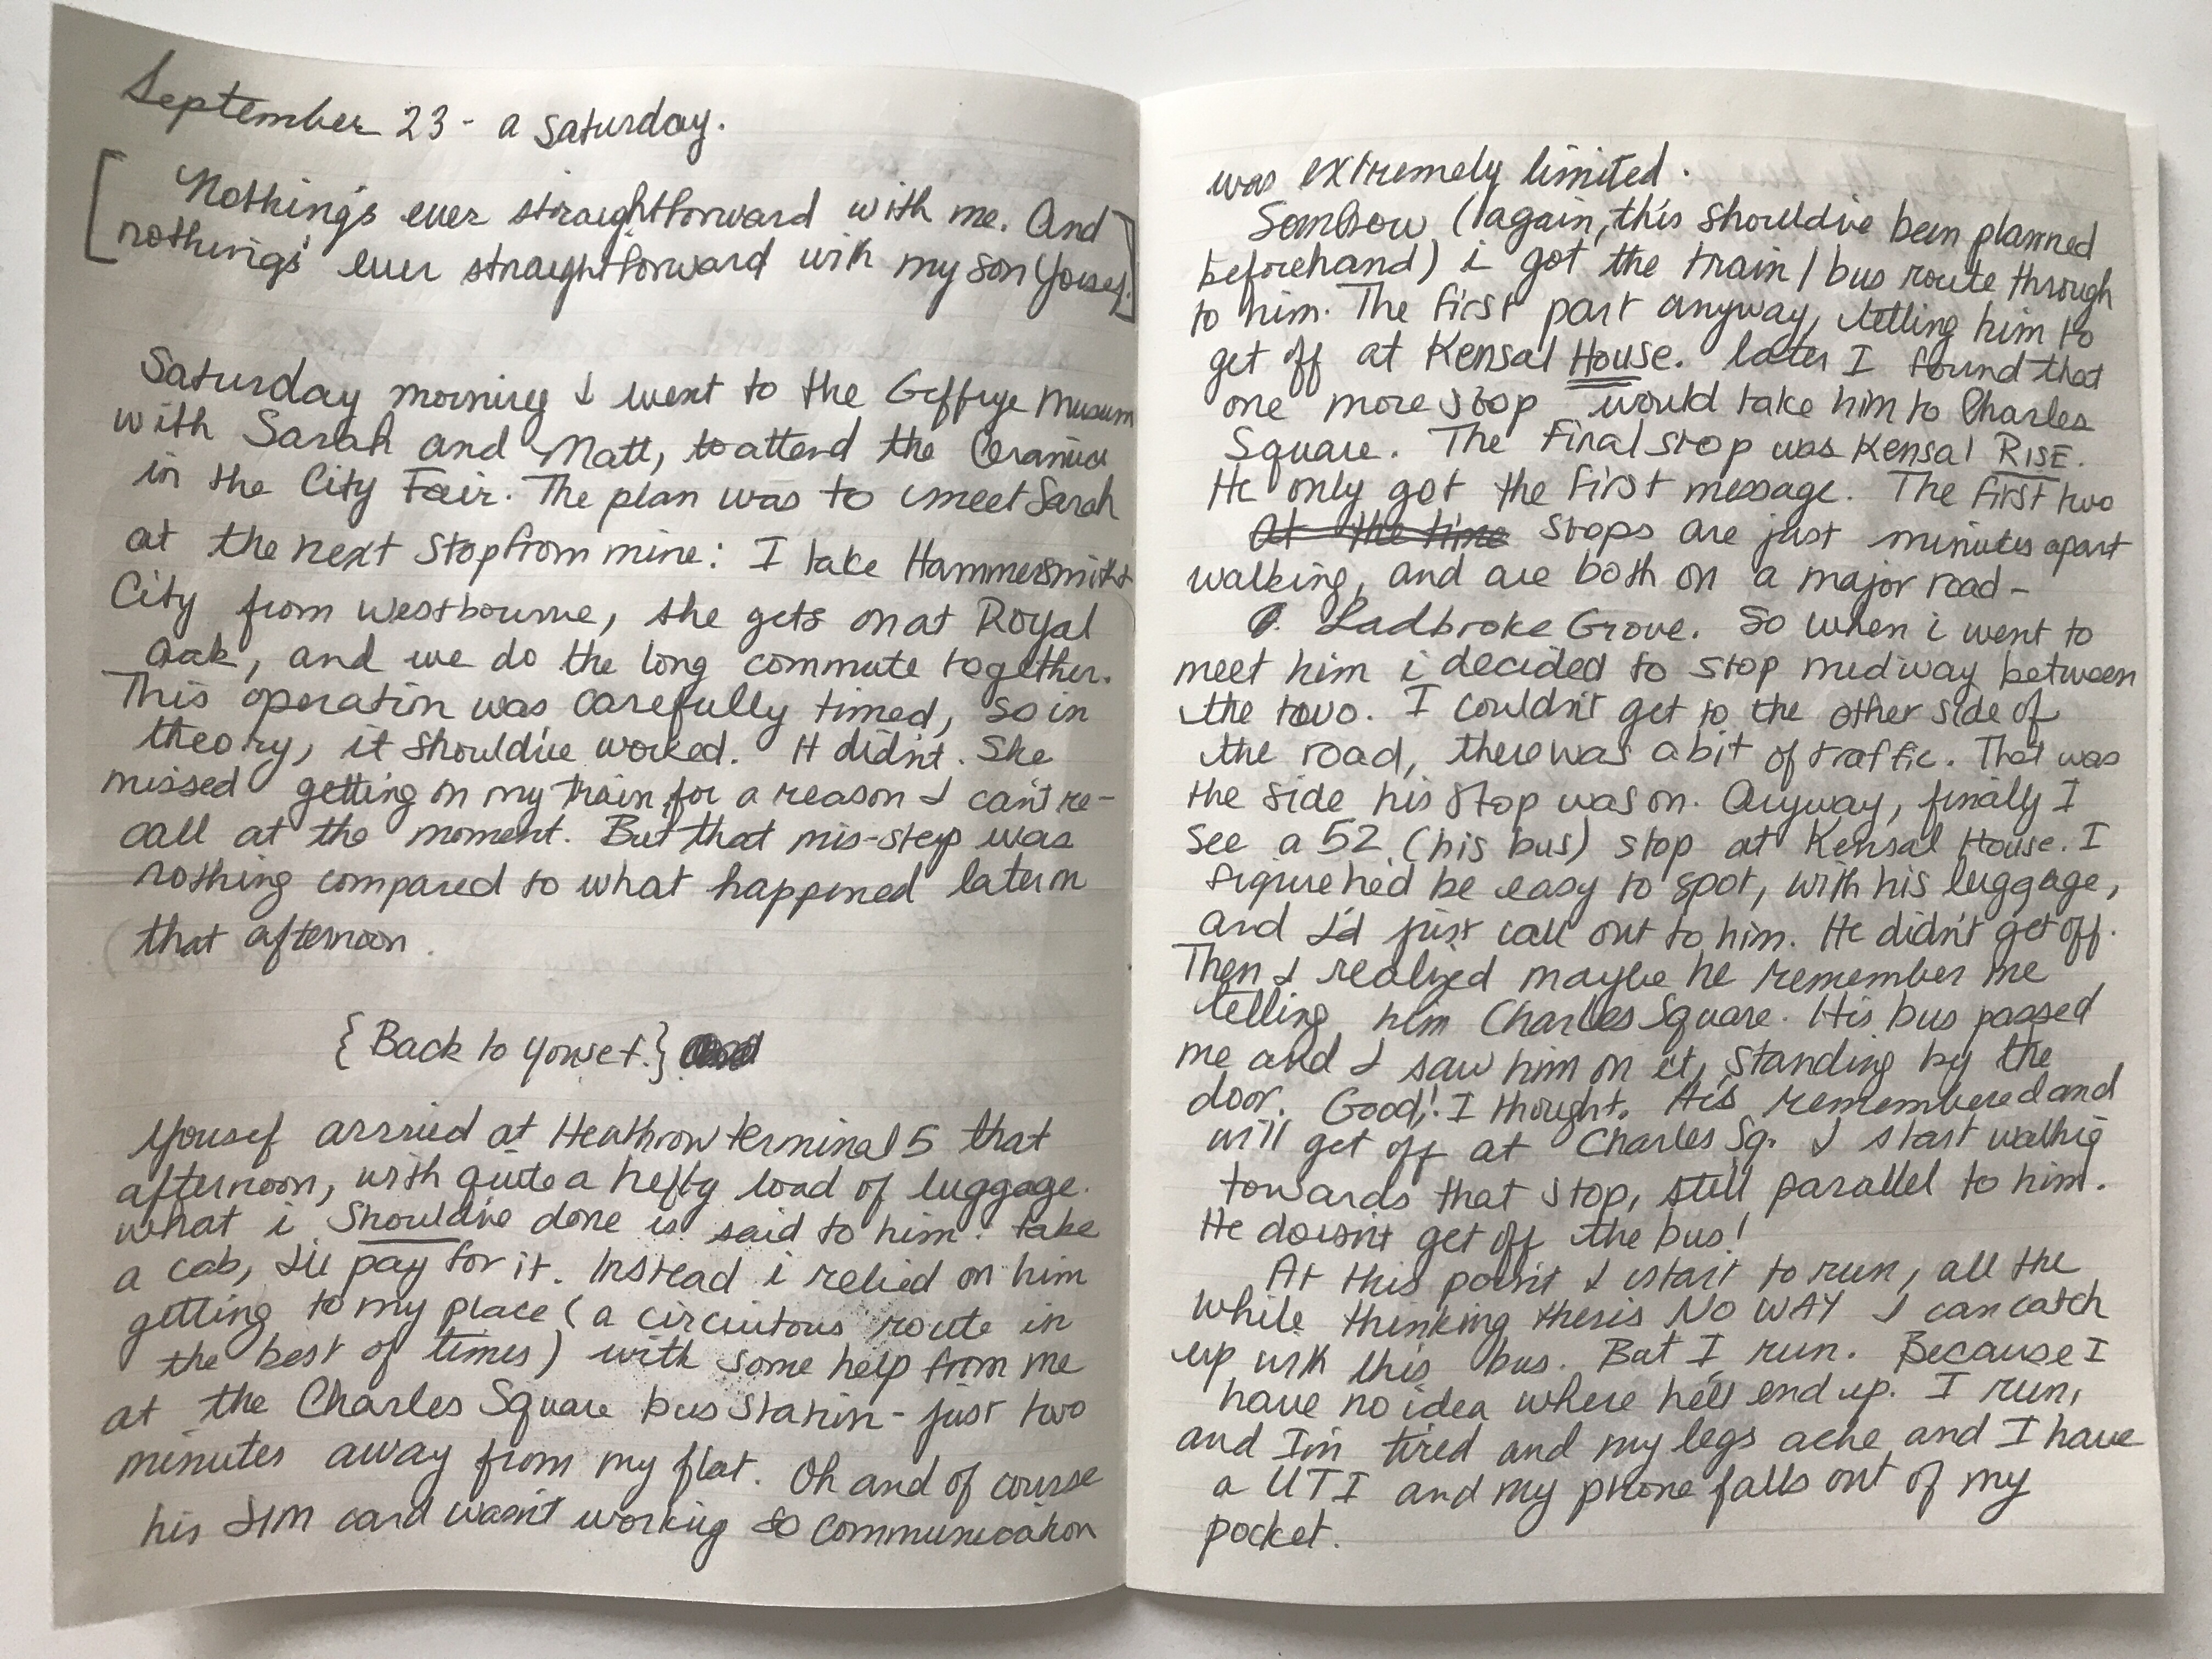 September 23 - a Saturday.
[Nothing's ever straightforward with me. And
nothing's ever straightforward with my son Yousef.]
Saturday morning I went to the Geffrye Museum
with Sarah and Matt, to attend the Ceramics
in the City Fair. The plan was to meet Sarah
at the next stop from mine: I take Hammersmith+
City from Westbourne, she gets on at Royal
Oak, and we do the long commute together.
This operation was carefully timed, so in
theory, it should've worked. It didn't. She
missed getting on my train for a reason I can't re-
call at the moment. But that mis-step was
nothing compared to what happened later on
that afternoon.
{Back to Yousef.}
Yousef arrived at Heathrow terminal 5 that
afternoon, with quite a hefty load of luggage.
what i should've done is said to him: take
a cab, I'll pay for it. Instead i relied on him
getting to my place (a circuitous route in
the best of times) with some help from me
at the Charles Square bus station - just two
minutes away from my flat. Oh and of course
his SIM card wasn't working so communication
was extremely limited.
Somhow (again, this should've been planned
beforehand) i got the train/bus route through
to him. The first part anyway, telling him to
get off at Kensal House. Later I found that
one more stop would take him to Charles
Square. The final stop was Kensal RISE.
He only got the first message. The first two
At the time stops are just minutes apart
walking, and are both on a major road -
Ladbroke Grove. So when i went to
meet him i decided to stop midway between
the two. I couldn't get to the other side of
the road, there was a bit of traffic. That was
the side his stop was on. Anyway, finally I
see a 52 (his bus) stop at Kensal House. I
figure he'd be easy to spot, with his luggage,
and I'd just call out to him. He didn't get off.
Then I realized maybe he remember me
telling him Charles Square. His bus passed
me and I saw him on it, standing by the
door. Good! I thought. He's remembered and
will get off at Charles Sq. I start walking
towards that stop, still parallel to him.
He doesn't get off the bus!
At this point I start to run, all the
while thinking there's NO WAY I can catch
up with this bus. But I run. Because I
have no idea where he'll end up. I run,
and I'm tired and my legs ache and I have
a UTI and my phone falls out of my
pocket.